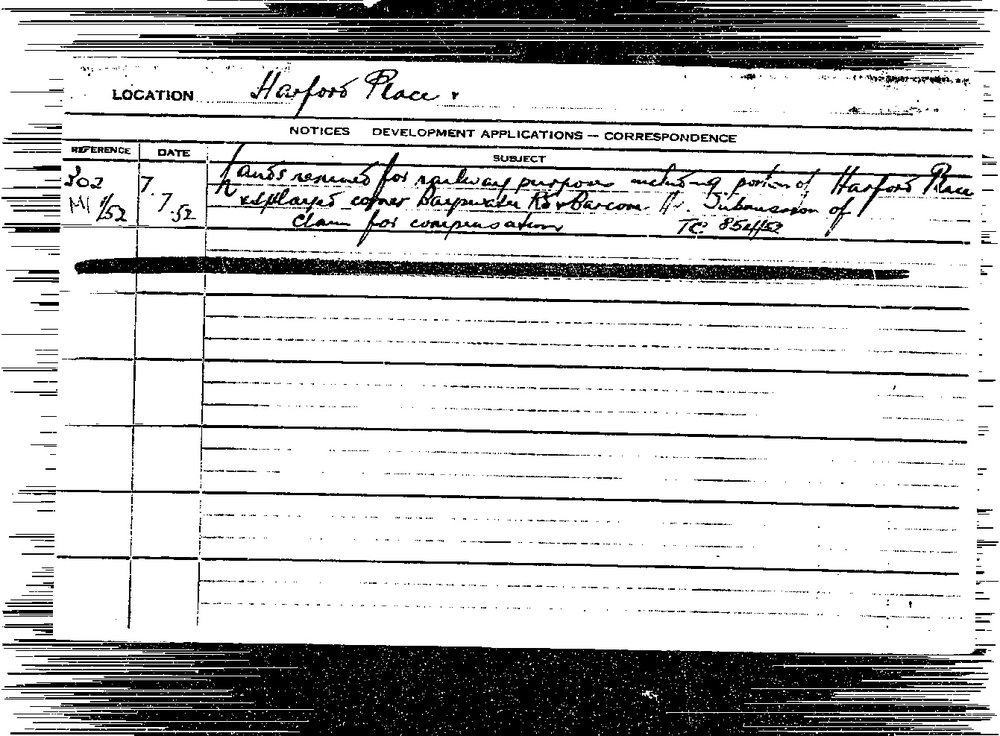 LOCATION Harford Place
NOTICES DEVELOPMENT APPLICATIONS — CORRESPONDENCE
REFERENCE DATE SUBJECT
302 7. Lands resumed for railway purposes including portion of Harford Place
M1 1/52 7.52 & splayed corner Bayswater Rd & Barcom Av. Submission of
Claim for compensation TC 854/52